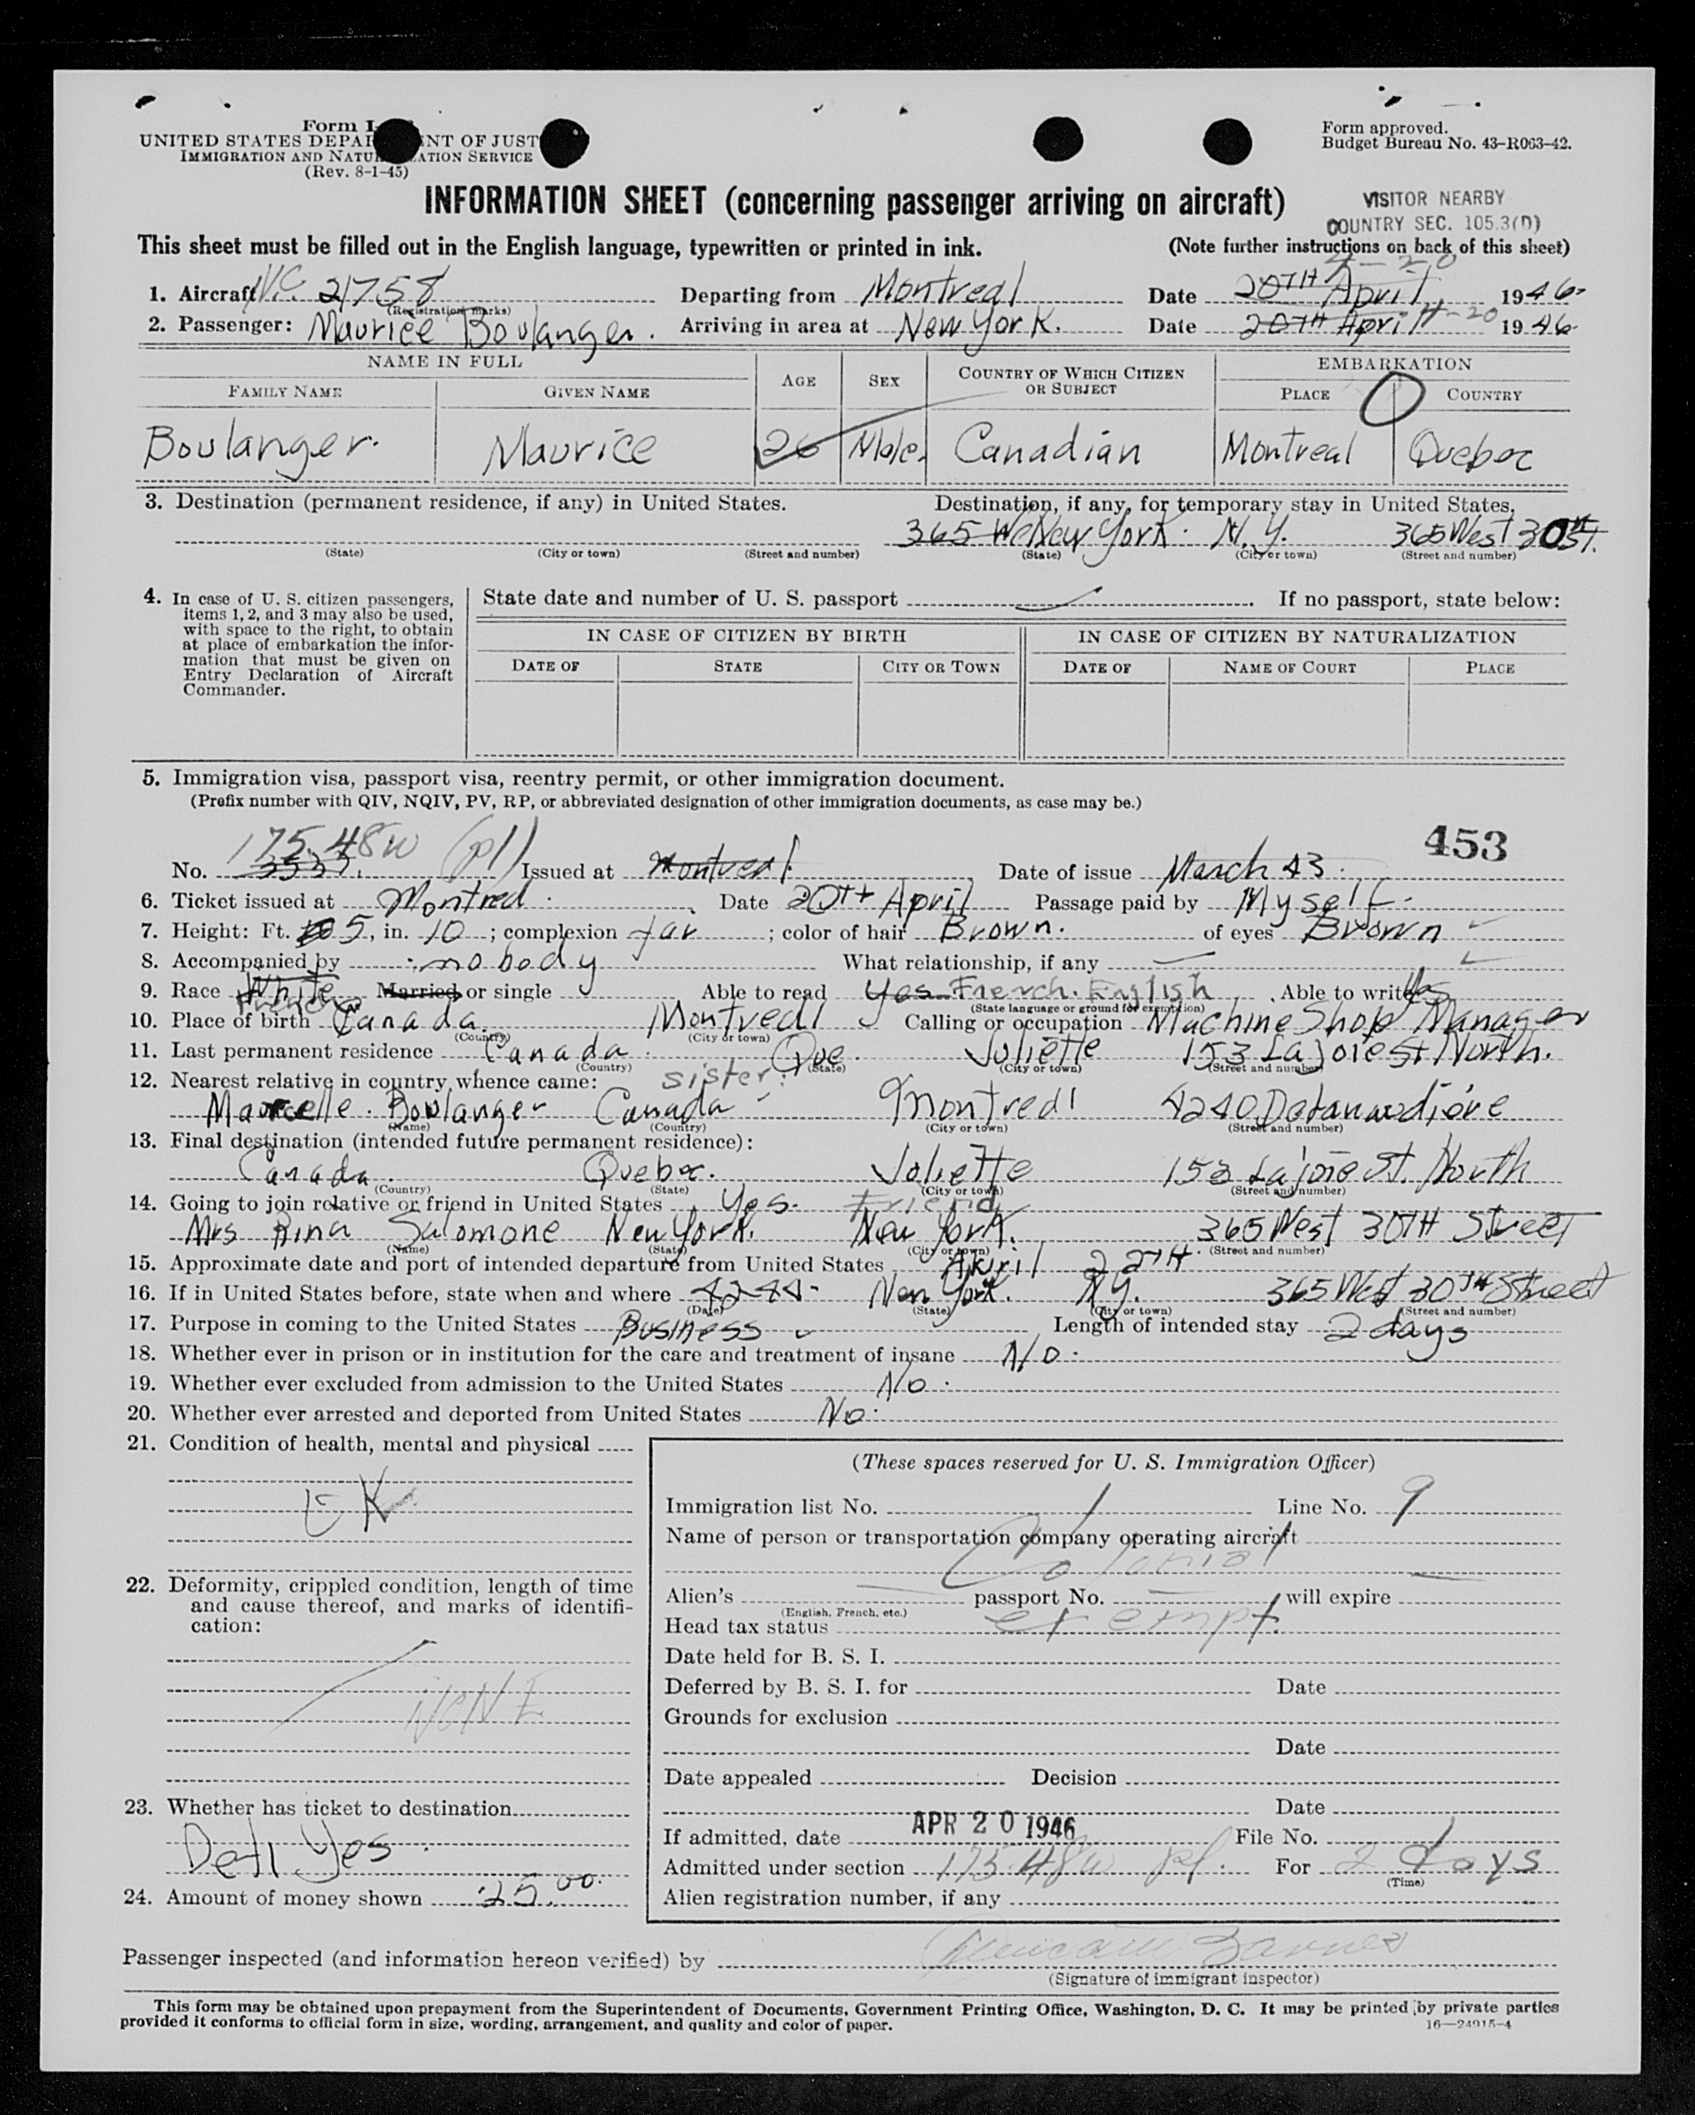 Form I-
UNITED STATES DEPA NT OF JUST
IMMIGRATION AND NATU ATION SERVICE
(Rev. 8-1-45)
Form approved.
Budget Bureau No. 43-R063-42.
INFORMATION SHEET (concerning passenger arriving on aircraft)
VISITOR NEARBY
COUNTRY SEC. 105.3(D)
This sheet must be filled out in the English language, typewritten or printed in ink.
(Note further instructions on back of this sheet)
4-20
1. Aircraft N.C. 21758 Departing from Montreal Date 20TH April, 1946-
(Registration marks)
2. Passenger: Maurice Boulanger. Arriving in area at New York. Date 20TH April 4-20 1946-
NAME IN FULL AGE SEX COUNTRY OF WHICH CITIZEN OR SUBJECT EMBARKATION
FAMILY NAME GIVEN NAME PLACE COUNTRY
Boulanger. Maurice 26 Male. Canadian Montreal Quebec
3. Destination (permanent residence, if any) in United States. Destination, if any, for temporary stay in United States.
365 We New York. N.Y. 365 West 30th St.
(State) (City or town) (Street and number) (State) (City or town) (Street and number)
4. In case of U. S. citizen passengers, items 1, 2, and 3 may also be used, with space to the right, to obtain at place of embarkation the information that must be given on Entry Declaration of Aircraft Commander.
State date and number of U. S. passport If no passport, state below:
IN CASE OF CITIZEN BY BIRTH IN CASE OF CITIZEN BY NATURALIZATION
DATE OF STATE CITY OR TOWN DATE OF NAME OF COURT PLACE
5. Immigration visa, passport visa, reentry permit, or other immigration document.
(Prefix number with QIV, NQIV, PV, RP, or abbreviated designation of other immigration documents, as case may be.)
175.48w (pl) 453
No. Issued at Montreal. Date of issue March 43.
6. Ticket issued at Montreal. Date 20TH April Passage paid by Myself.
7. Height: Ft. 5, in. 10; complexion far; color of hair Brown. of eyes Brown
8. Accompanied by nobody What relationship, if any
9. Race White French Married or single Able to read Yes French. English Able to write Yes
(State language or ground for exemption)
10. Place of birth Canada. Montreal Calling or occupation Machine Shop Manager
(Country) (City or town)
11. Last permanent residence Canada. Que. Joliette 153 Lajoie St North.
(Country) (State) (City or town) (Street and number)
12. Nearest relative in country whence came: sister.
Marcelle. Boulanger Canada Montreal 4240
(Name) (Country) (City or town) (Street and number)
13. Final destination (intended future permanent residence):
Canada. Quebec. Joliette 153 Lajoie St. North
(Country) (State) (City or town) (Street and number)
14. Going to join relative or friend in United States Yes. Friend
Mrs Rina Salomone New York. New York. 365 West 30TH Street
(Name) (State) (City or town) (Street and number)
15. Approximate date and port of intended departure from United States April 22TH.
16. If in United States before, state when and where New York. N.Y. 365 West 30TH Street
(Date) (State) (City or town) (Street and number)
17. Purpose in coming to the United States Business Length of intended stay 2 days
18. Whether ever in prison or in institution for the care and treatment of insane No.
19. Whether ever excluded from admission to the United States No.
20. Whether ever arrested and deported from United States No.
21. Condition of health, mental and physical
OK
22. Deformity, crippled condition, length of time and cause thereof, and marks of identification:
NONE
23. Whether has ticket to destination
Yes.
24. Amount of money shown 25.00.
(These spaces reserved for U. S. Immigration Officer)
Immigration list No. 1 Line No. 9
Name of person or transportation company operating aircraft
Colonial
Alien's passport No. will expire
(English, French, etc.)
Head tax status exempt.
Date held for B. S. I.
Deferred by B. S. I. for Date
Grounds for exclusion
Date
Date appealed Decision
Date
If admitted, date APR 20 1946 File No.
Admitted under section 175.48w pl. For 2 days
(Time)
Alien registration number, if any
Passenger inspected (and information hereon verified) by Barnes
(Signature of immigrant inspector)
This form may be obtained upon prepayment from the Superintendent of Documents, Government Printing Office, Washington, D. C. It may be printed by private parties
provided it conforms to official form in size, wording, arrangement, and quality and color of paper.
16—24915-4